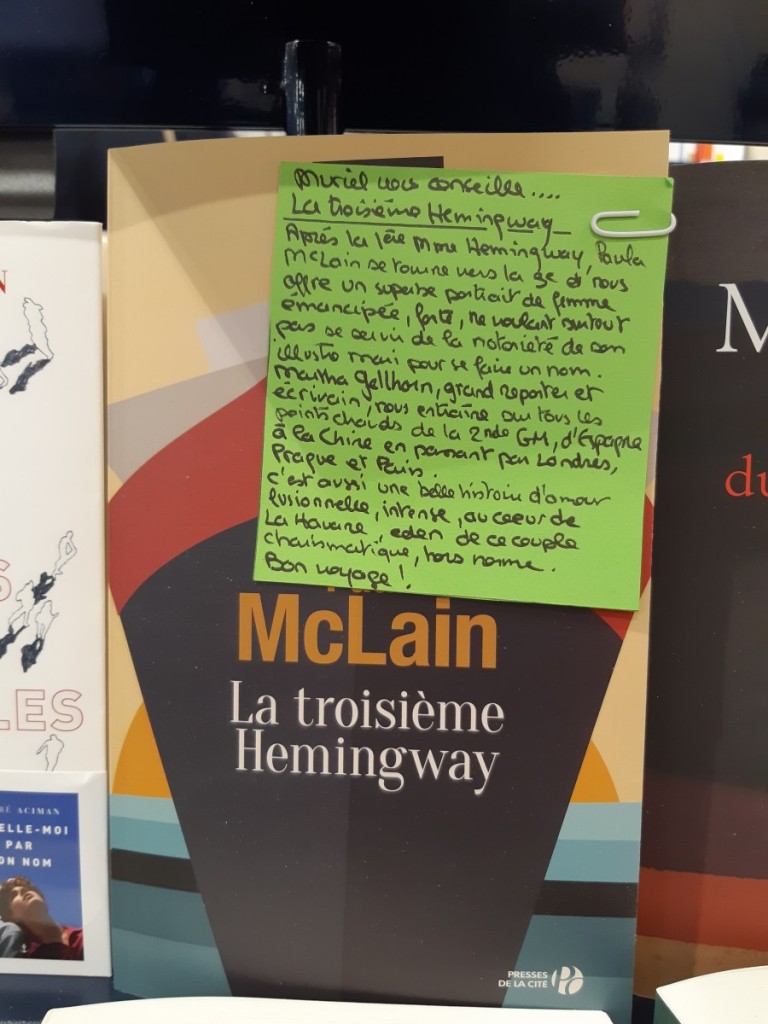 Muriel vous conseille....
La troisième Hemingway
Après la 1ère Mme Hemingway, Paula
McLain se tourne vers la 3e et nous
offre un superbe portrait de femme
émancipée, forte, ne voulant surtout
pas se servir de la notoriété de son
illustre mari pour se faire un nom.
Martha Gellhorn, grand reporter et
écrivain, nous entraîne sur tous les
points chauds de la 2nde GM, d'Espagne
à la Chine en passant par Londres,
Prague et Paris.
C'est aussi une belle histoire d'amour
fusionnelle, intense, au coeur de
La Havane, eden de ce couple
charismatique, hors norme.
Bon voyage!
McLain
La troisième
Hemingway
PRESSES
DE LA CITÉ
N
S
LES
RÉ ACIMAN
ELLE-MOI
PAR
ON NOM
M
du